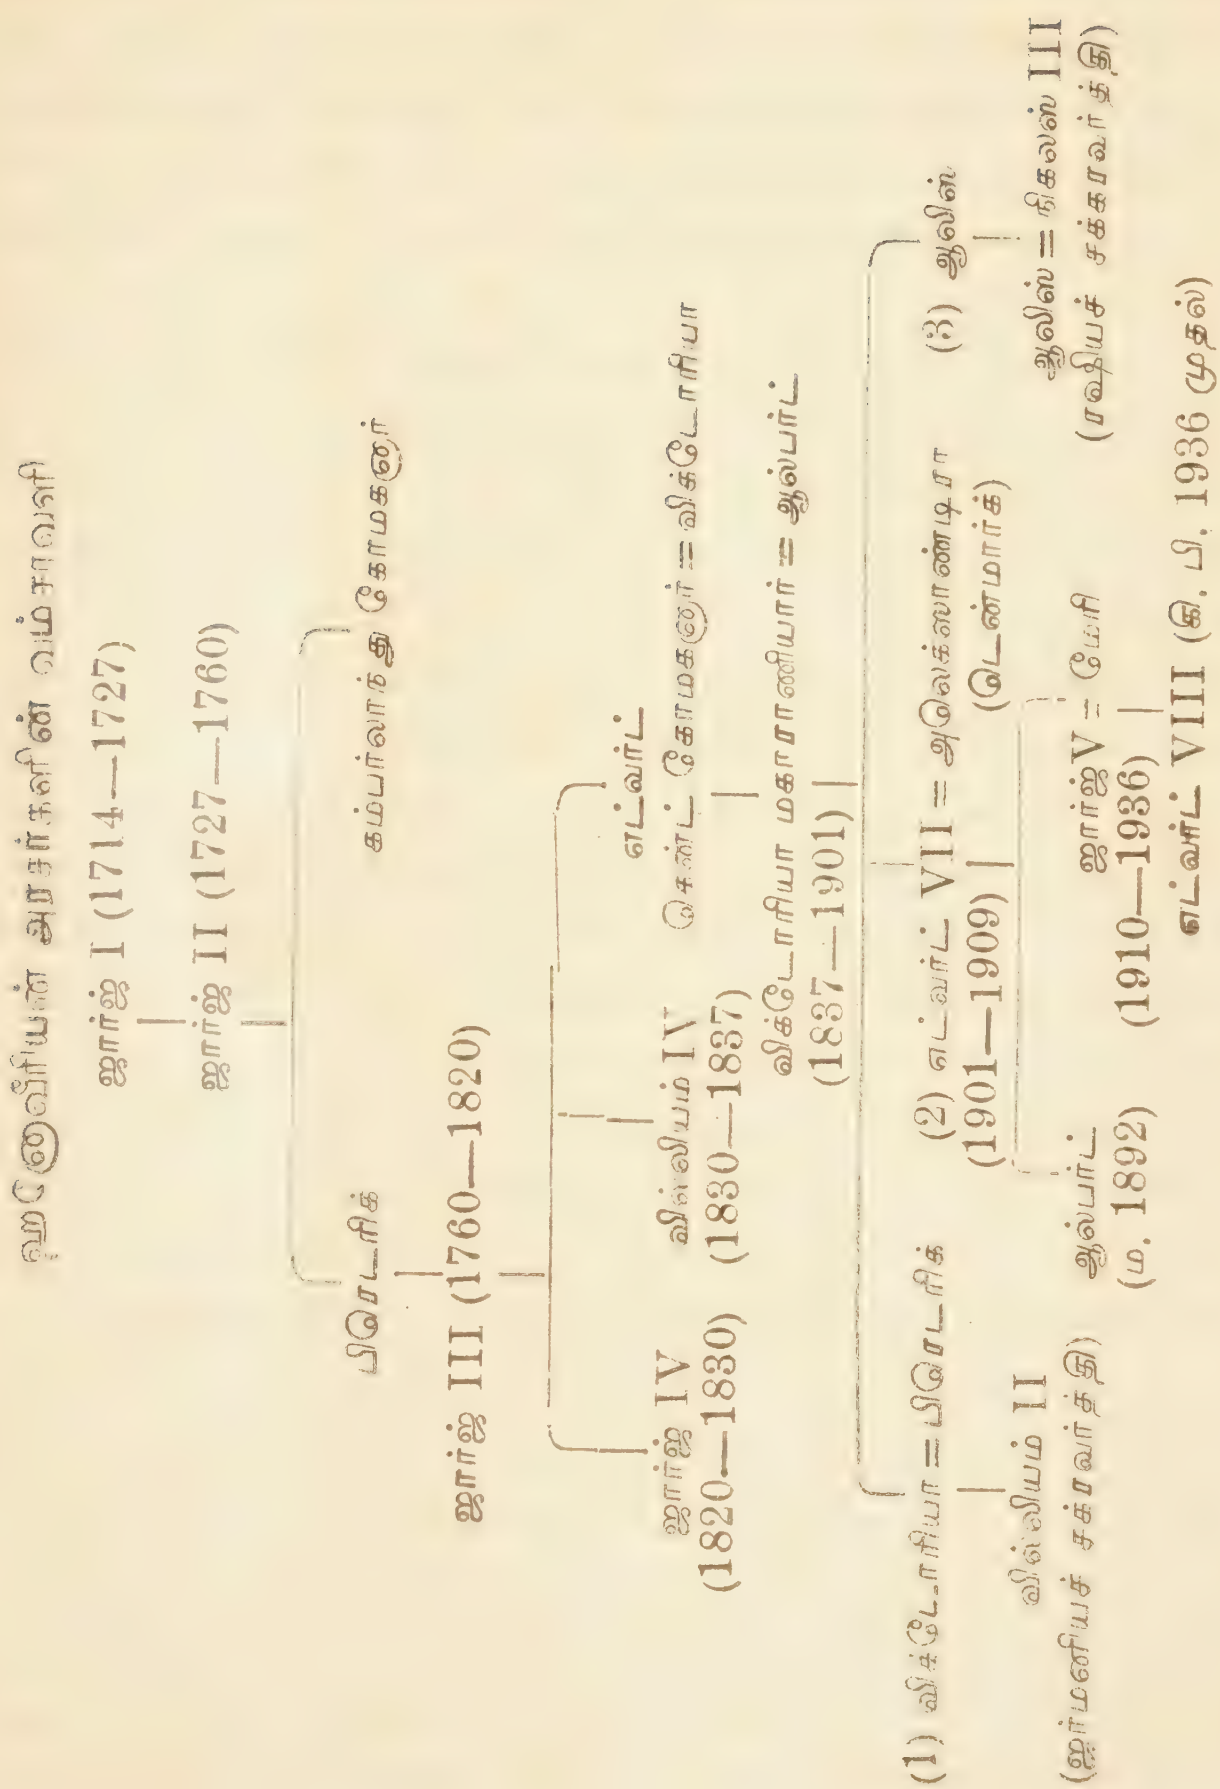 ஹனோவீரியன் அரசர்களின் வம்சாவளி
ஜார்ஜ் I (1714—1727)
ஜார்ஜ் II (1727—1760)
பிரெடரிக்
கம்பர்லாந்து கோமகனார்
ஜார்ஜ் III (1760—1820)
ஜார்ஜ் IV
(1820—1830)
வில்லியம் IV
(1830—1837)
எட்வர்ட்
கெண்ட் கோமகனார் = விக்டோரியா
விக்டோரியா மகாராணியார் = ஆல்பர்ட்
(1837—1901)
(1) விக்டோரியா = பிரெடரிக்
(2) எட்வர்ட் VII = அலெக்ஸாண்டிரா
(1901—1909) (டென்மார்க்)
(3) ஆலிஸ்
வில்லியம் II
(ஜர்மனியச் சக்ரவர்த்தி)
ஆல்பர்ட்
(ம. 1892)
ஜார்ஜ் V = மேரி
(1910—1936)
ஆலிஸ் = நிகலஸ் III
(ரஷியச் சக்கரவர்த்தி)
எட்வர்ட் VIII (கி. பி. 1936 முதல்)